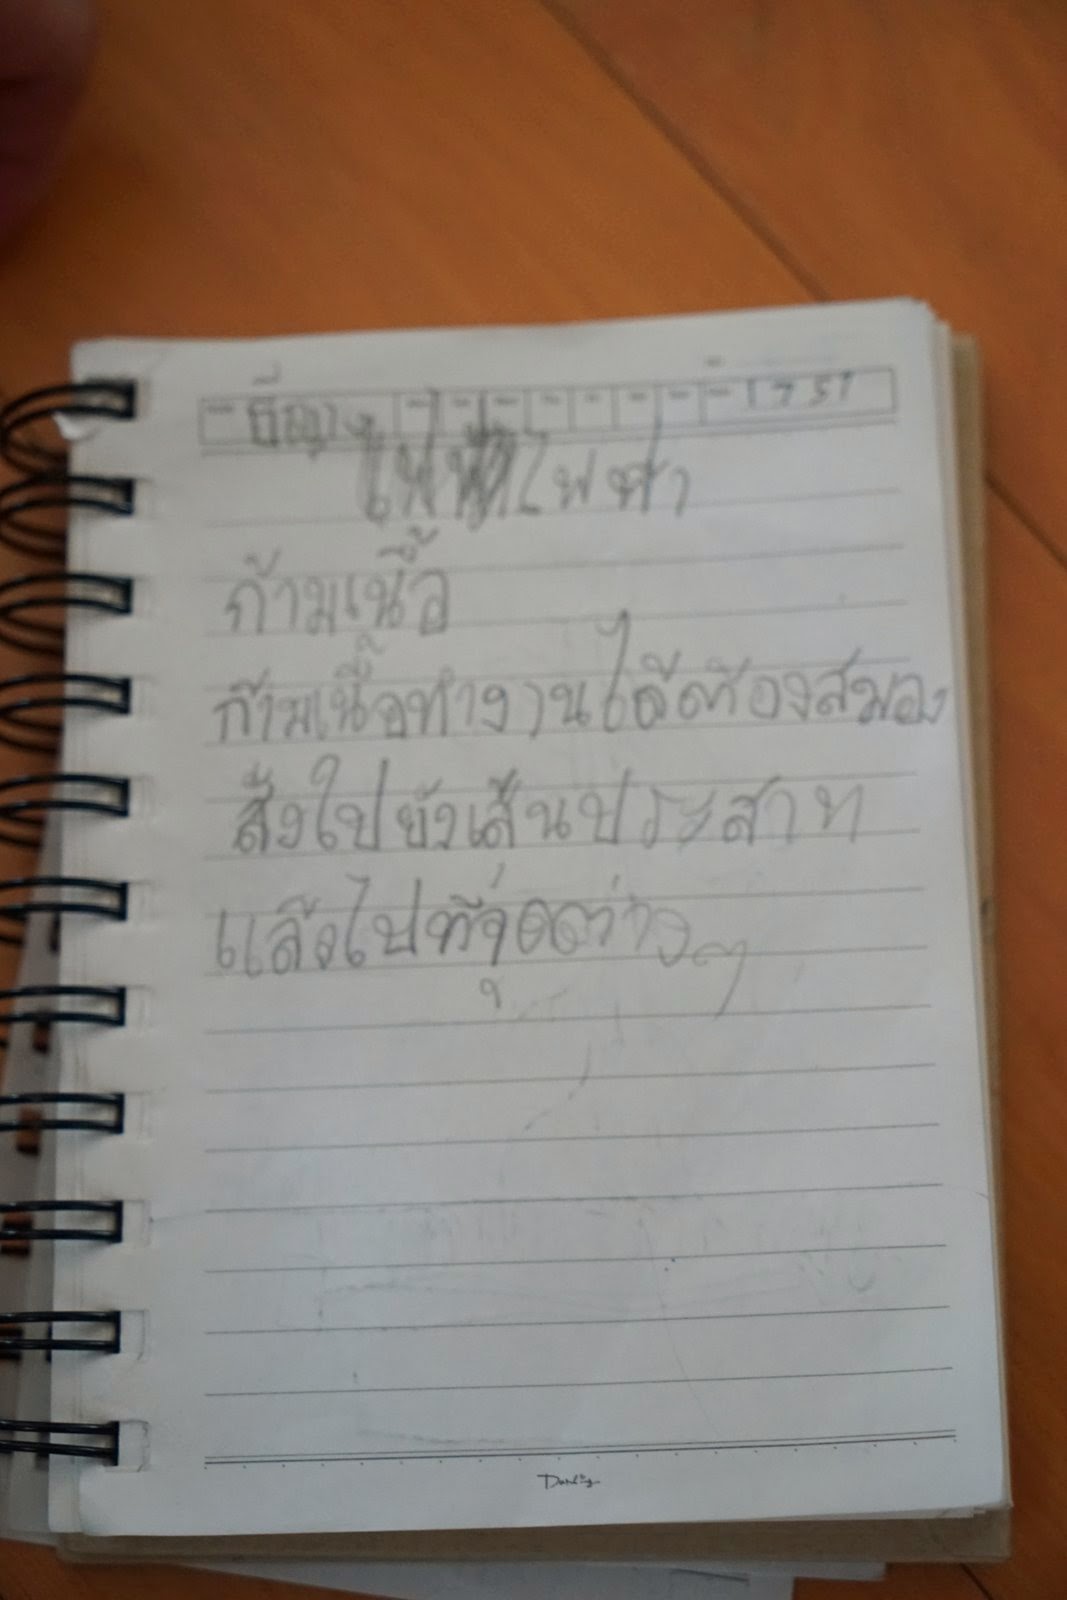 ไฟฟ้า
ก้ามเนื้อ
ก้ามเนื้อทำงานได้ต้องสมอง
สั่งไปยังเส้นประสาท
แล้วไปที่จุดต่างๆ